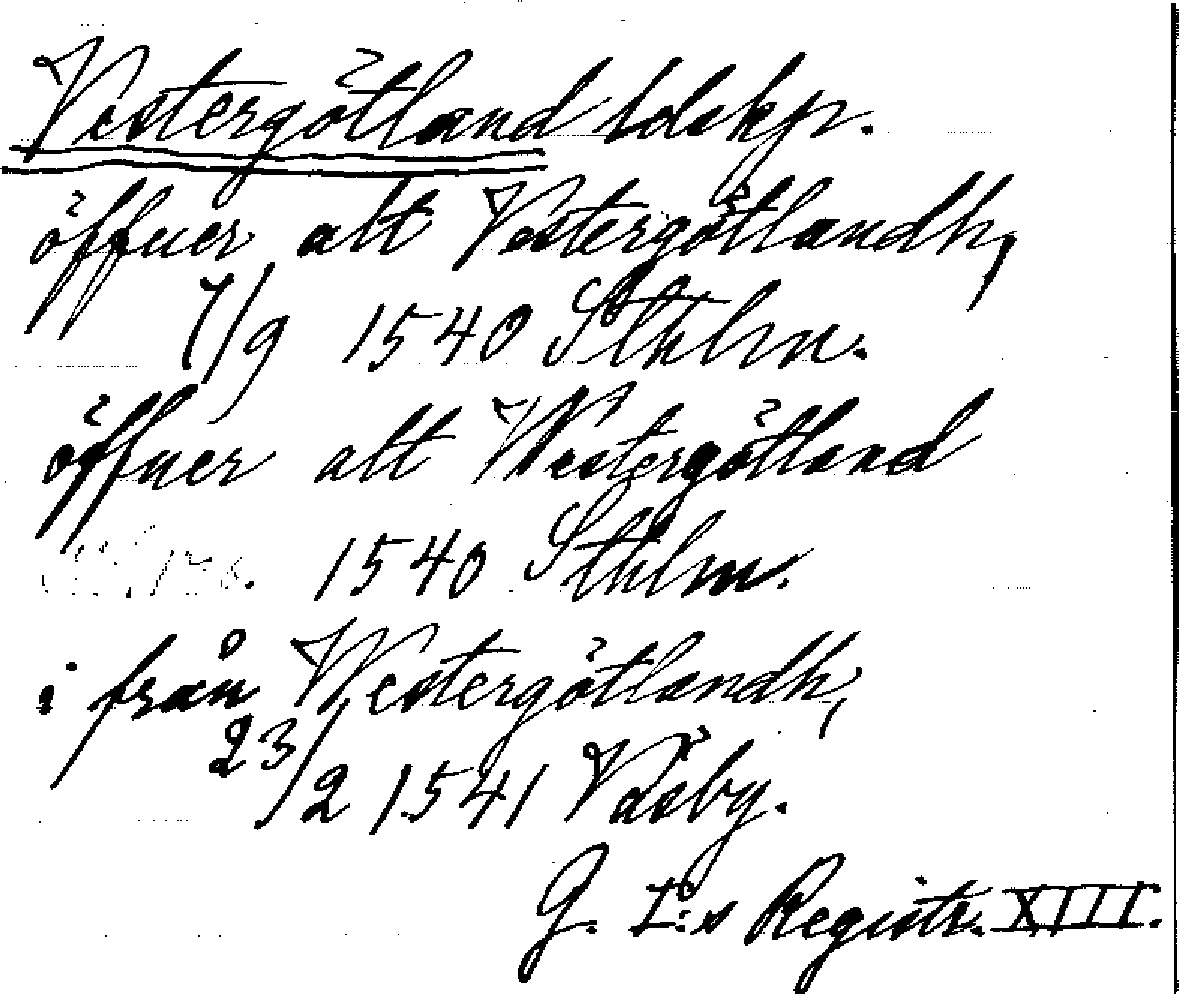 Vestergötland ldskp.
öffuer alt Vestergötlandh,
7/9 1540 Sthlm.
öffuer alt Westergötland
1540 Sthlm.
i från Westergötlandh,
23/2 1541 Väsby.
G. I:s Registr. XIII.